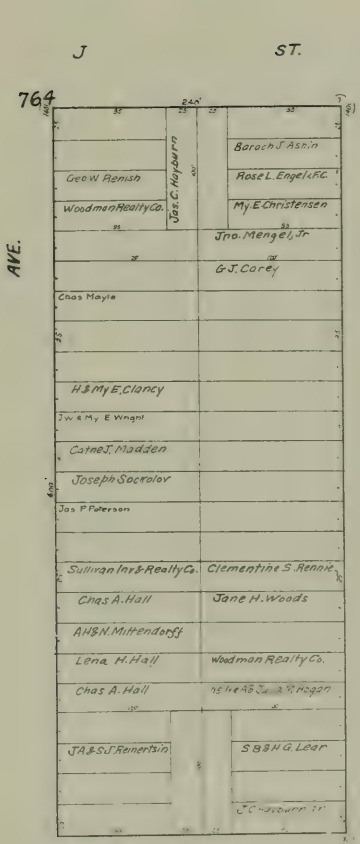 J ST.
764
240'
AVE.
Jas. C. Hayburn
Baroch J. Asnin
Geo W. Renish
Rose L. Engel & F.C.
Woodman Realty Co.
My. E. Christensen
Jno. Mengel, Jr
G J. Carey
Chas Mayle
H & My E. Clancy
J W & My E Wright
Cathe J. Madden
Joseph Sockolov
600'
Jas P Paterson
Sullivan Inv & Realty Co.
Clementine S. Rennie
Chas A. Hall
Jane H. Woods
AH & N. Mittendorff
Lena H. Hall
Woodman Realty Co.
Chas A. Hall
Hogan
JA & S J Reinertsin
S B & H G. Lear